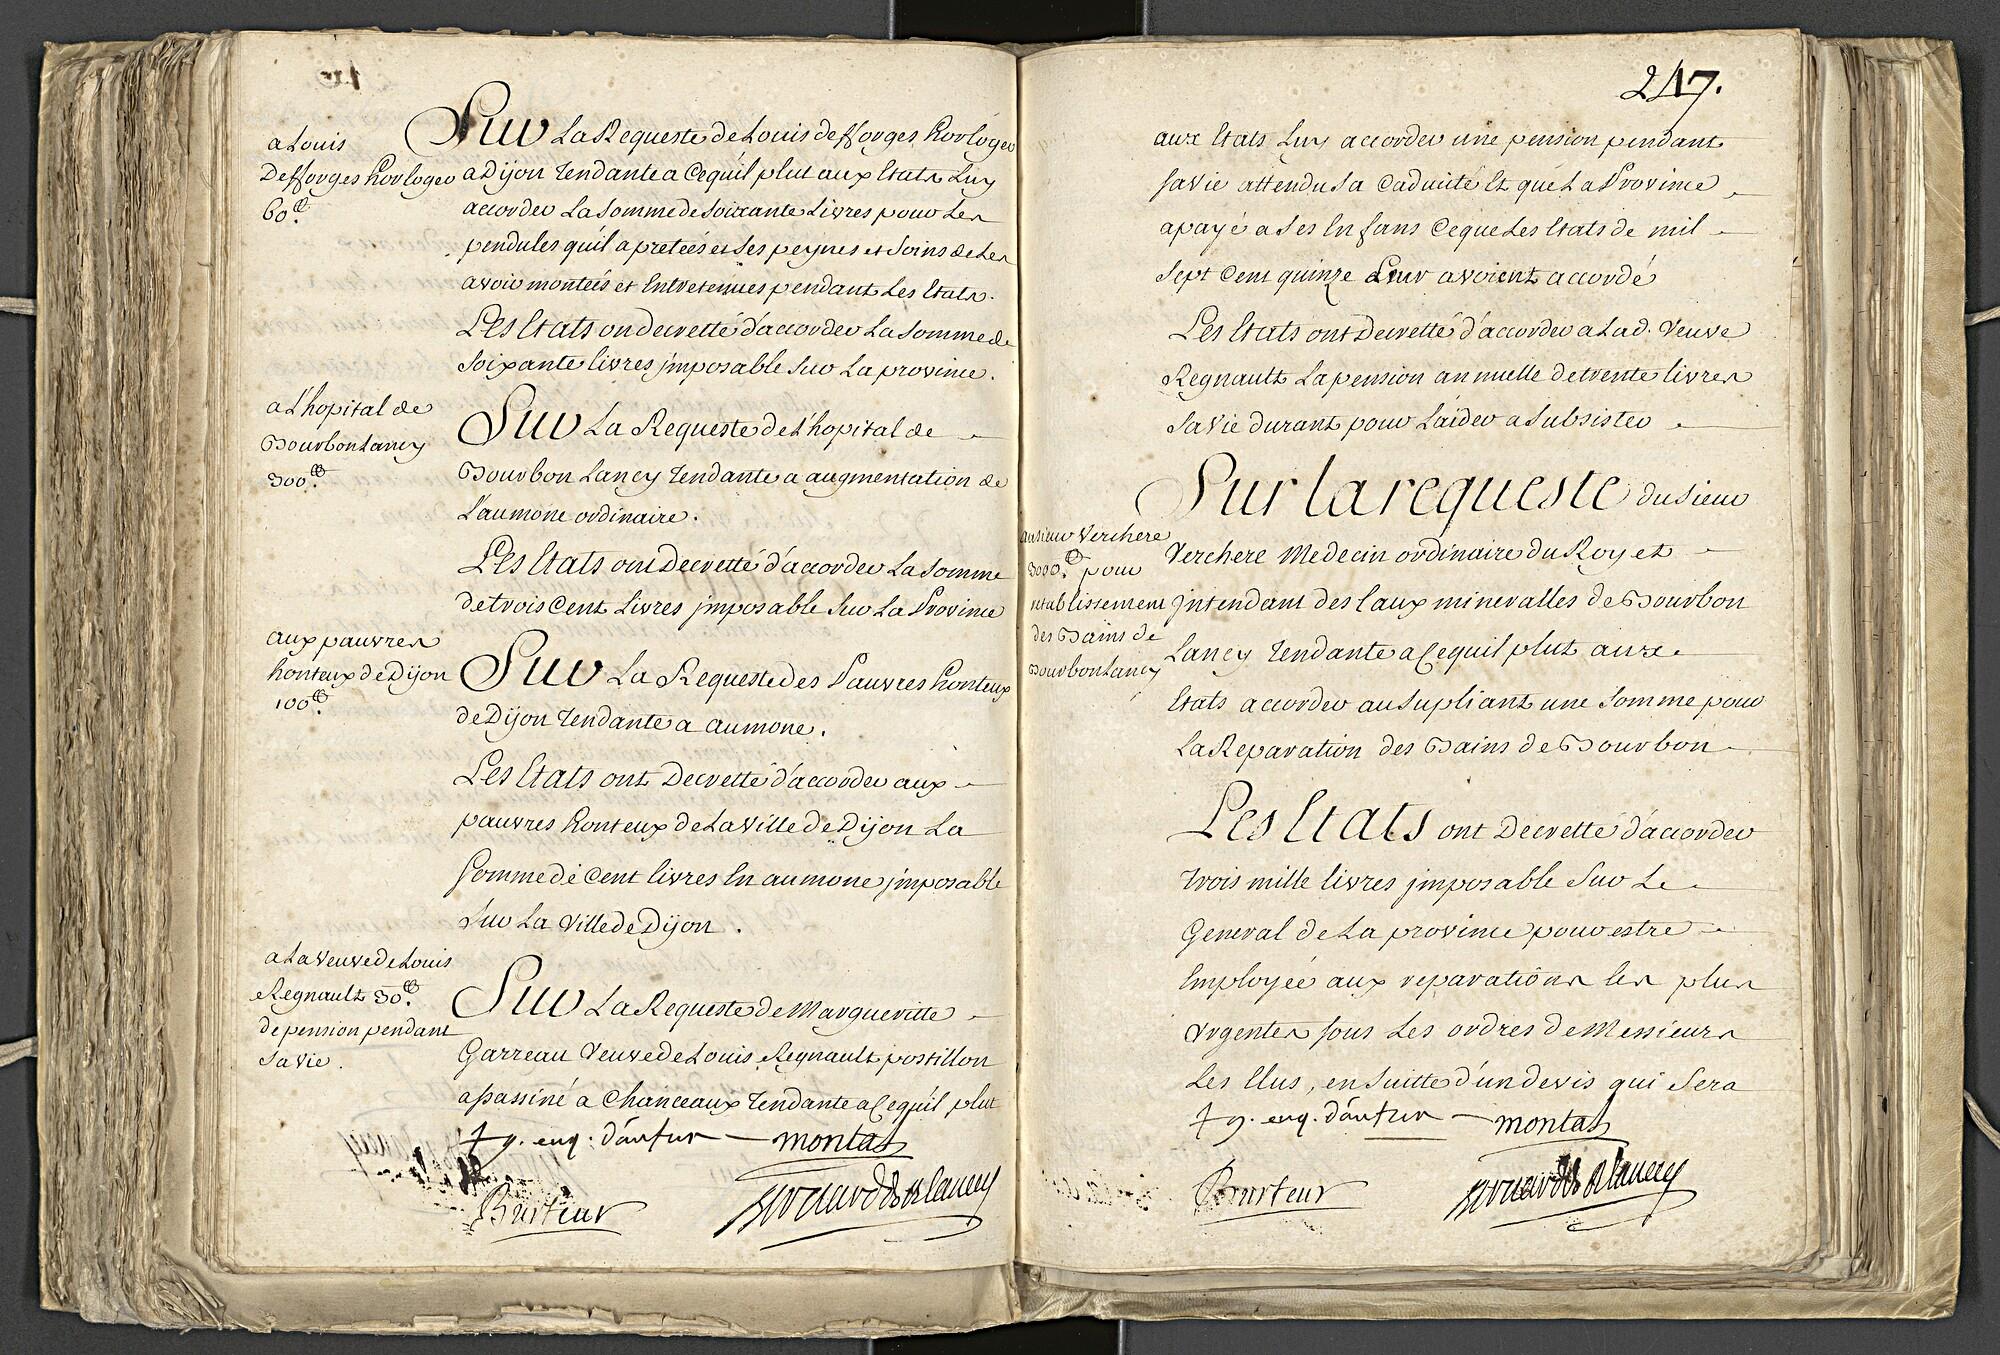 a Louis
Desforges horloger
60.ᵗᵗ
Sur La Requeste de Louis desforges horloger
a Dijon tendante a Cequil plut aux Etats Luy
accorder La somme de soixante Livres pour Les
pendules qu'il a pretées et Ses peynes et Soins de Les
avoir montées et Entretenües pendant Les Etats.
Les Etats on decretté d'accorder La somme de
Soixante livres jmposable Sur La province.
a L'hopital de
Bourbon Lancy
300.ᵗᵗ
Sur La Requeste de L'hopital de
Bourbon Lancy tendante a augmentation de
L'aumone ordinaire.
Les Etats ont Decretté d'accorder La Somme
de trois Cent Livres jmposable Sur La Province
aux pauvres
honteux de Dijon
100.ᵗᵗ
Sur La Requeste des Pauvres honteux
de Dijon tendante a aumone.
Les Etats ont Decretté d'accorder aux
pauvres honteux de La Ville de Dijon La
Somme de Cent livres En aumone jmposable
Sur La Ville de Dijon.
a La Veuve de Louis
Regnault 30.ᵗᵗ
de pension pendant
Sa Vie.
Sur La Requeste de Margueritte
Garreau Veuve de Louis Regnault postillon
assassiné a Chanceaux tendante a Cequ'il plut
montal
Burteur
247.
aux Etats Luy accorder une pension pendant
Sa Vie attendu Sa Caducité Et que La Province
a payé a Ses Enfans Ceque Les Etats de mil
Sept Cent quinze Leur avoient accordé
Les Etats ont Decretté d'accorder a Lad. Veuve
Regnault La pension annuelle de trente livres
Sa Vie durant pour L'aider a Subsister.
au Sieur Verchere
3000.ᵗᵗ pour
retablissement
des Bains de
Bourbon Lancy
Sur la requeste du Sieur
Verchere Medecin ordinaire du Roy et
jntendant des Eaux mineralles de Bourbon
Lancy tendante a Cequil plut aux
Etats accorder au Supliant une Somme pour
La Reparation des Bains de Bourbon
Les Etats ont Decretté d'accorder
trois mille livres jmposable Sur Le
General de La province pour estre
Employée aux reparations les plus
Urgentes sous Les ordres de Messieurs
Les Elus, en Suitte d'un devis qui Sera
montal
Burteur